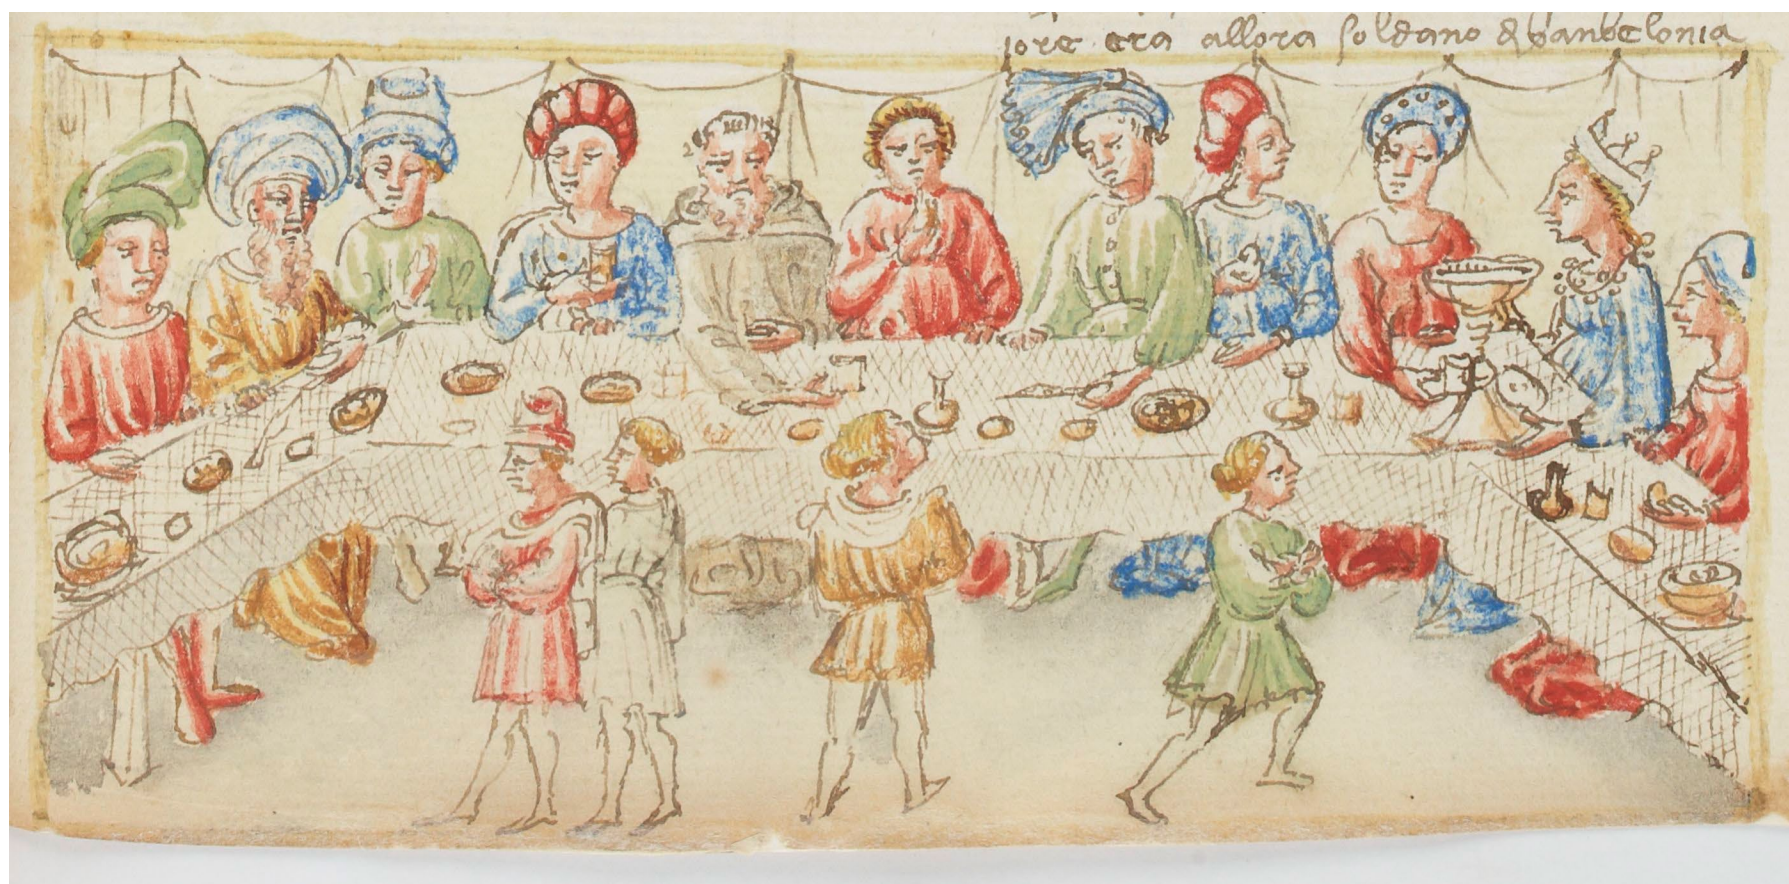 iore era allora soldano di banbelonia